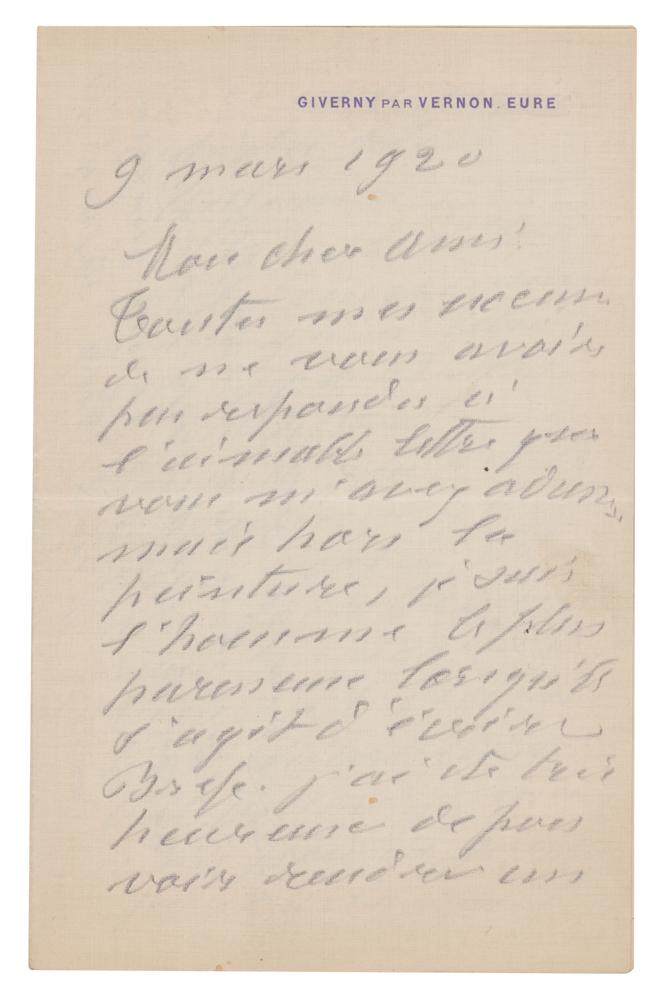 GIVERNY PAR VERNON. EURE
9 mars 1920
Mon cher ami
Toutes mes excuses
de ne vous avoir
pas répondu à
l'aimable lettre que
vous m'avez adressée,
mais hors la
peinture, je suis
l'homme le plus
paresseux lorsqu'il
s'agit d'écrire
Bref. j'ai été très
heureux de pou
voir rendre un